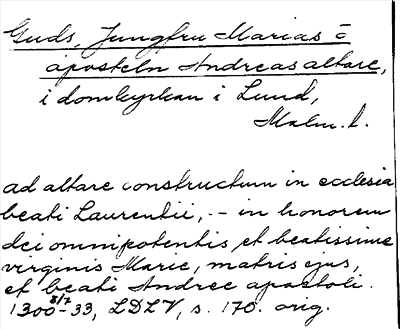 Guds, Jungfru Marias o
aposteln Andreas altare,
i domkyrkan i Lund,
Malm. l.
ad altare constructum in ecclesia
beati Laurentii, -- in honorem
dei omnipotentis et beatissime
virginis Marie, matris ejus,
et beati Andree apostoli.
1300 8/7 -33, LDLV, s. 170. orig.